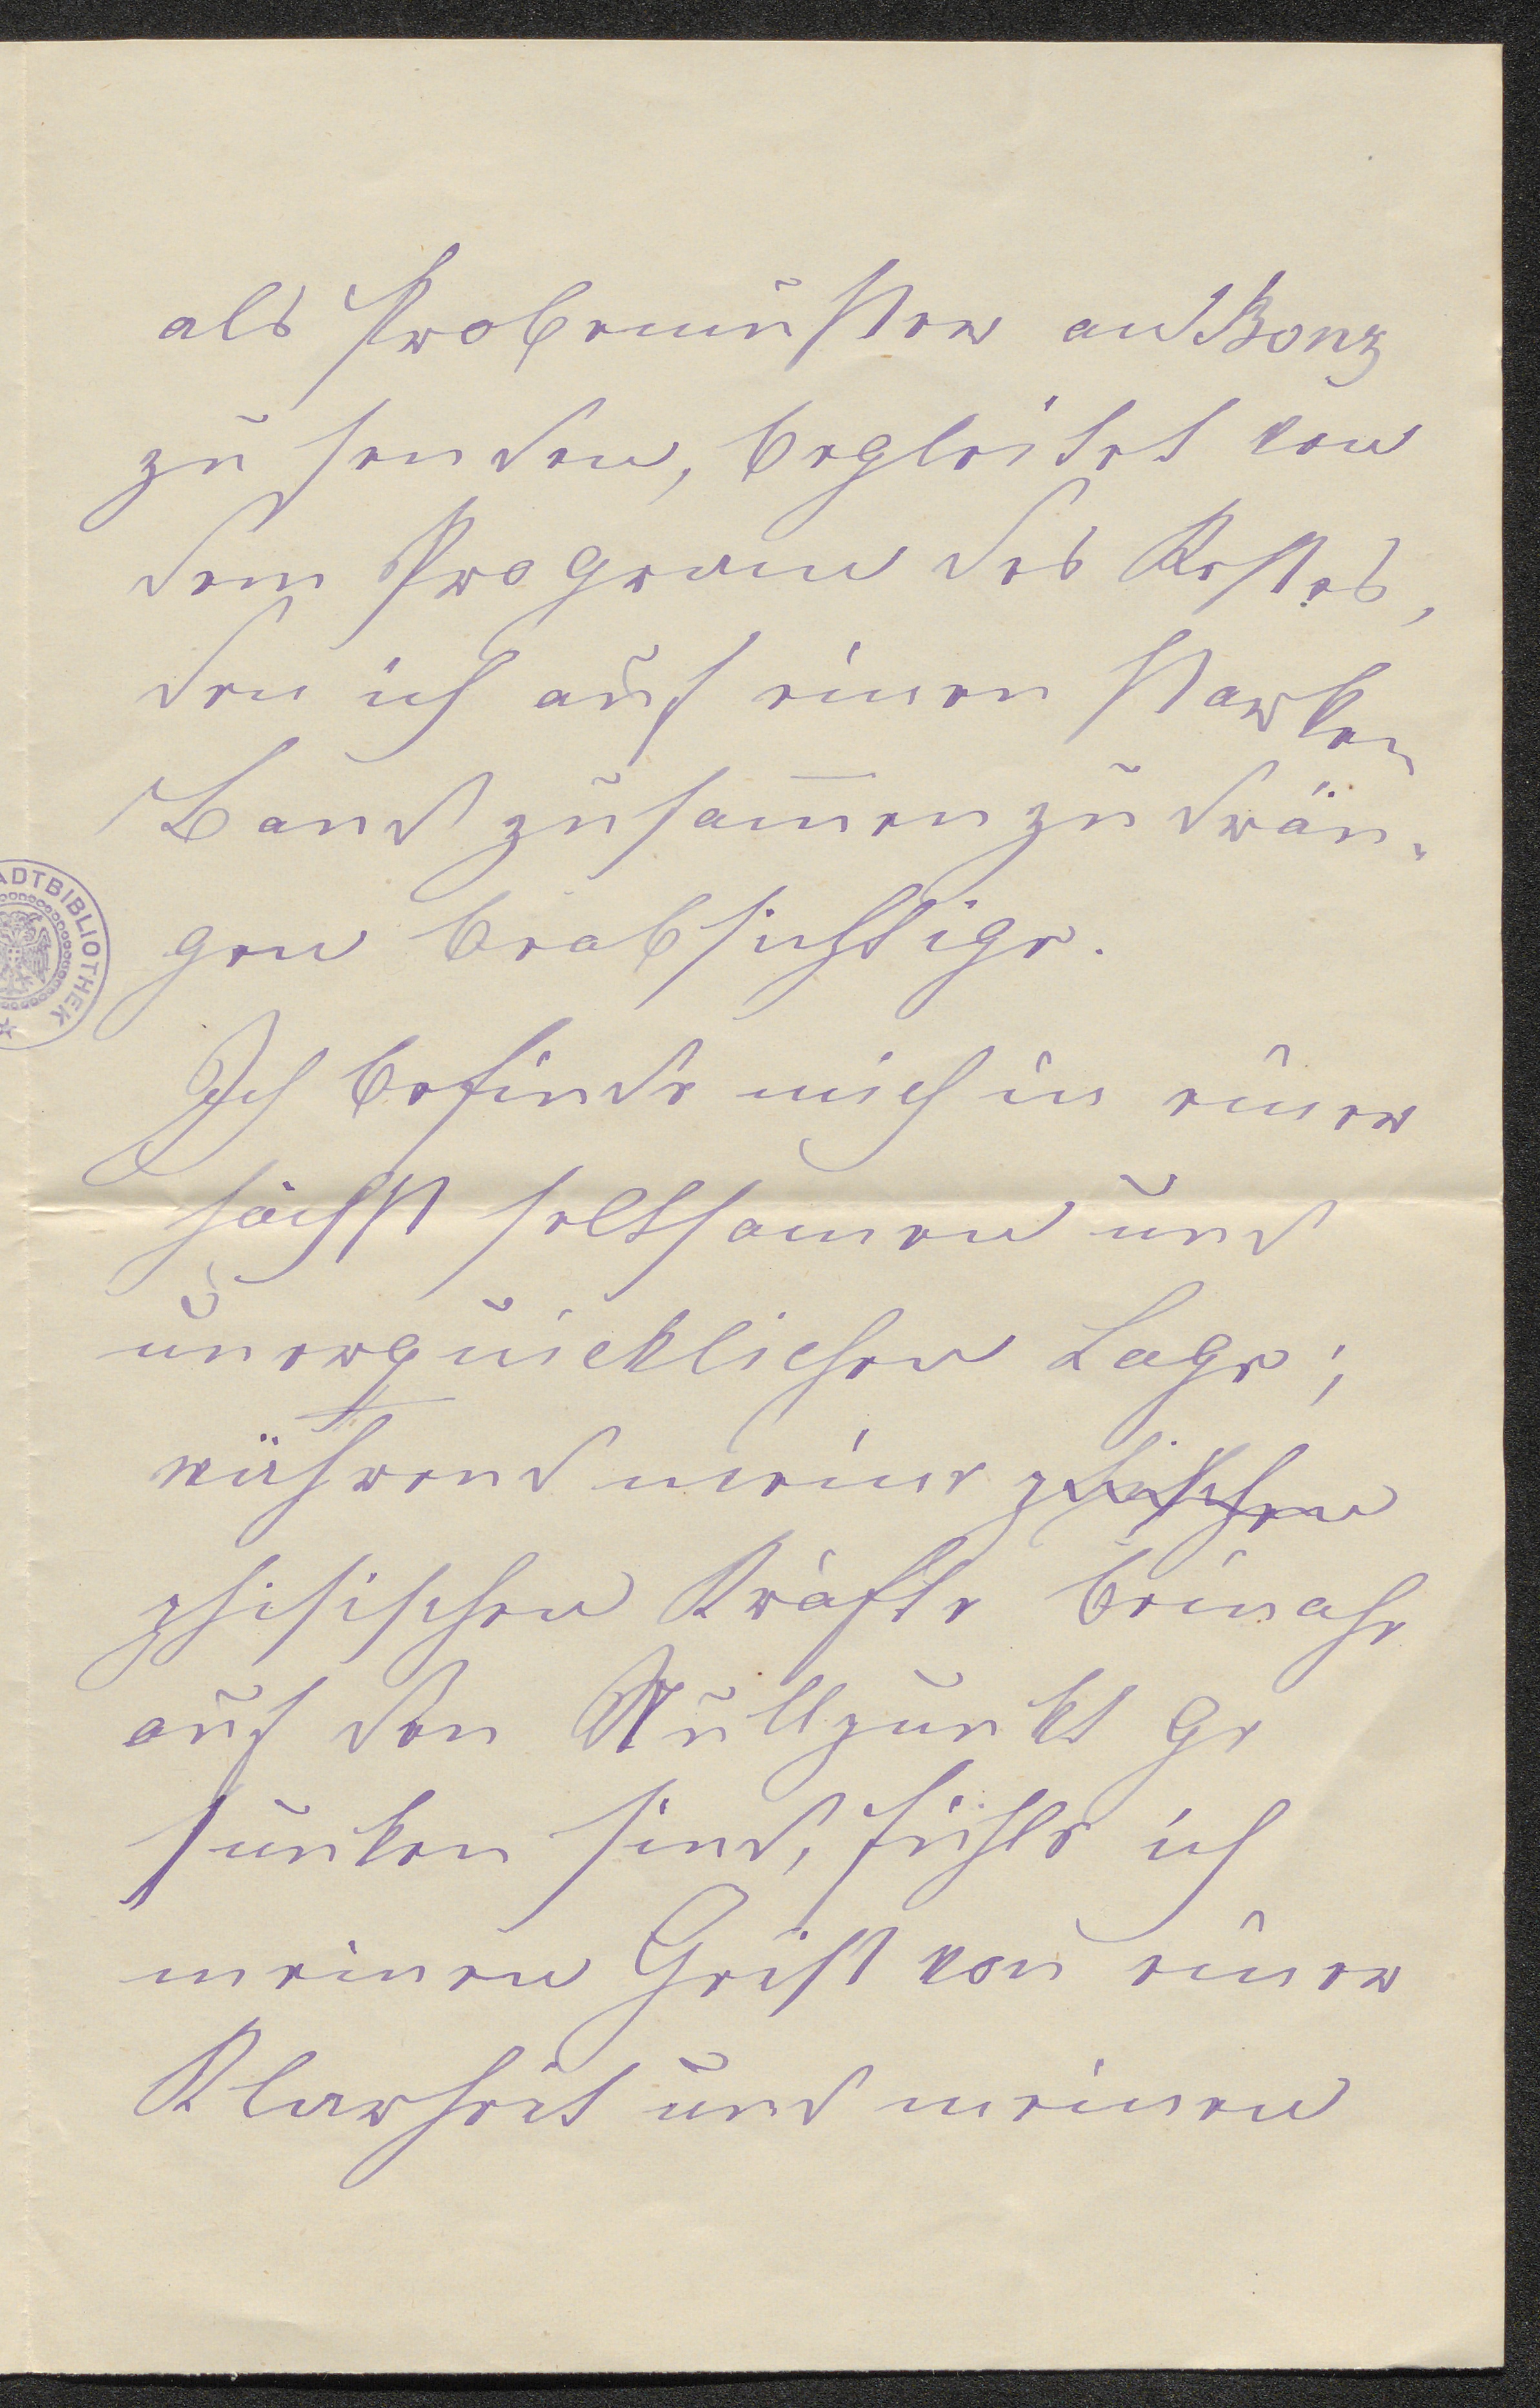 als Probemuster an Bonz
zu senden, begleitet von
dem Program des Restes,
den ich auf einen starken
Band zusam̅enzudrän-
gen beabsichtige.
Ich befinde mich in einer
höchst seltsamen und
unerquicklichen Lage;
während meine
phisischen Kräfte beinahe
auf den Nullpunkt ge
sunken sind, fühle ich
meinen Geist von einer
Klarheit und meinen
ADTBIBLIOTHEK